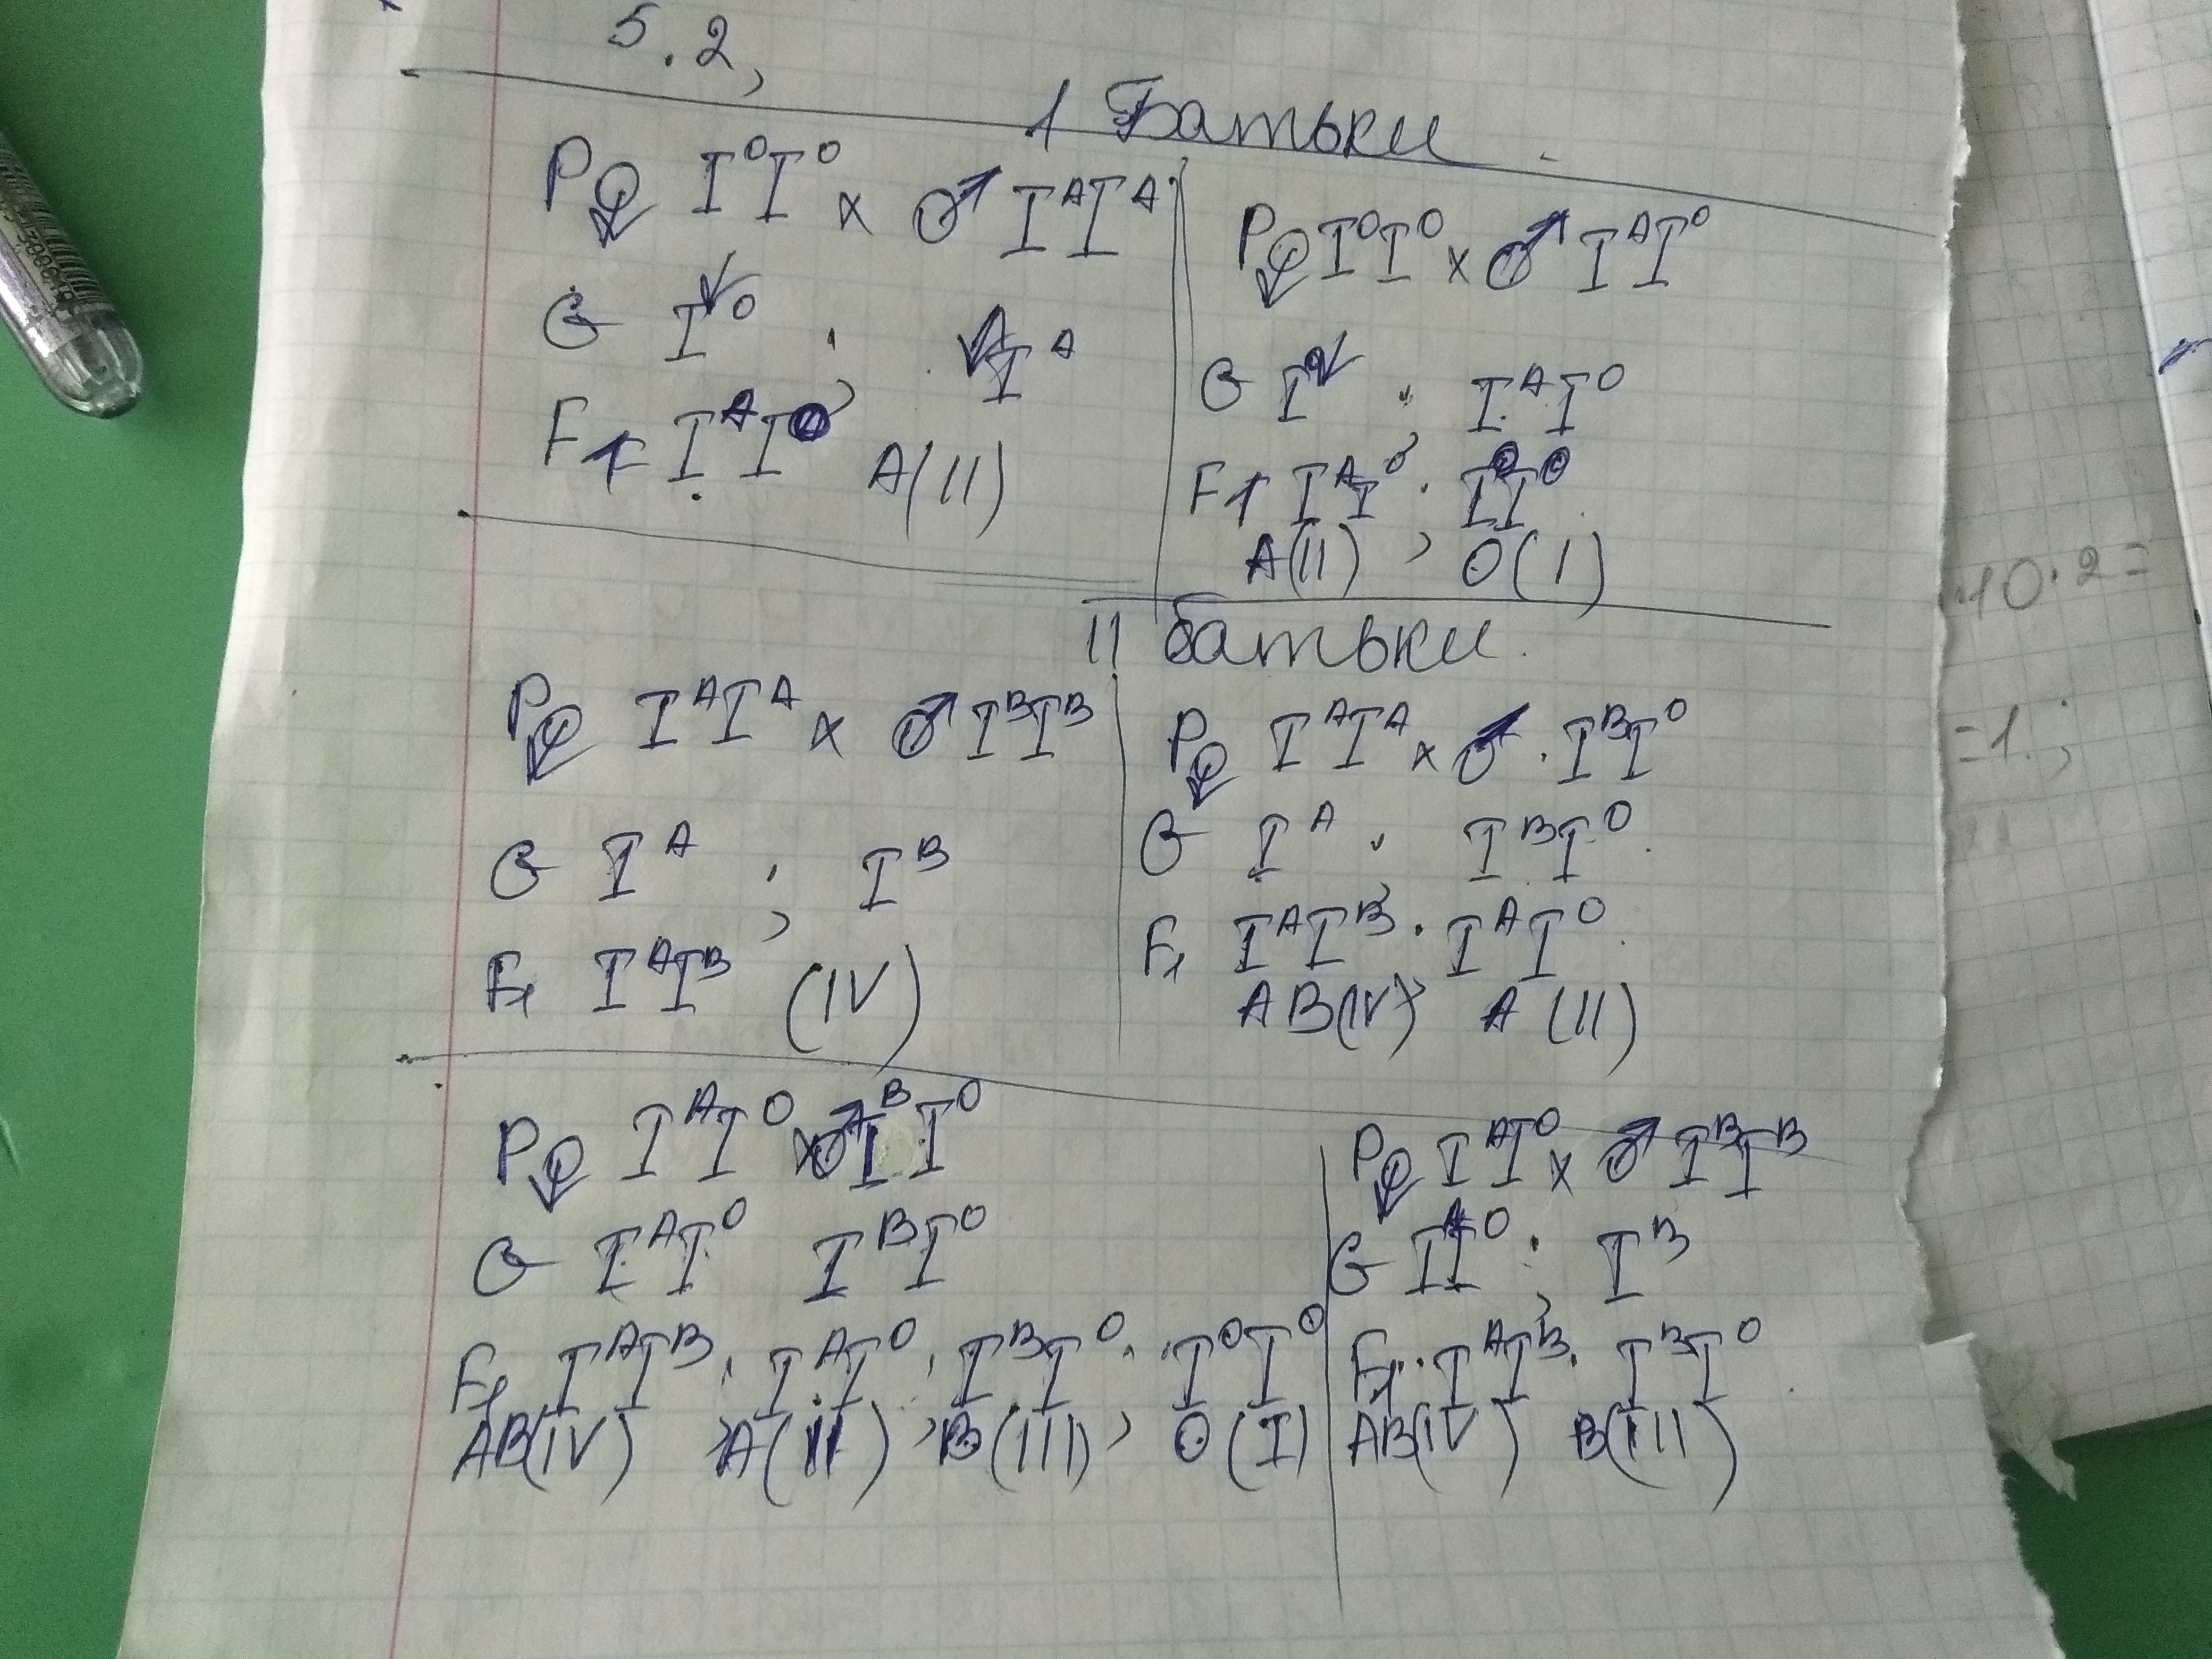 5.2,
1 Батьки.
P♀ I⁰I⁰ × ♂ IᴬIᴬ
G I⁰ ; Iᴬ
F1 IᴬI⁰ A(II)
P♀ I⁰I⁰ × ♂ IᴬI⁰
G I⁰ ; IᴬI⁰
F1 IᴬI⁰ ; I⁰I⁰
A(II) , O(I)
II батьки.
P♀ IᴬIᴬ × ♂ IᴮIᴮ
G Iᴬ ; Iᴮ
F1 IᴬIᴮ (IV)
P♀ IᴬIᴬ × ♂ IᴮI⁰
G Iᴬ ; IᴮI⁰
F1 IᴬIᴮ ; IᴬI⁰
AB(IV) A(II)
P♀ IᴬI⁰ × ♂ IᴮI⁰
G IᴬI⁰ IᴮI⁰
F1 IᴬIᴮ ; IᴬI⁰ ; IᴮI⁰ ; I⁰I⁰
AB(IV) , A(II) , B(III) , O(I)
P♀ IᴬI⁰ × ♂ IᴮIᴮ
G IᴬI⁰ ; Iᴮ
F1 IᴬIᴮ ; IᴮI⁰
AB(IV) B(III)
10·2=
=1.;